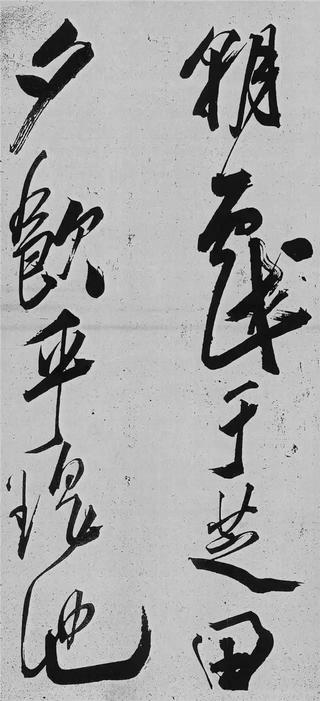 朝戲于芝田
夕飲乎瑤池